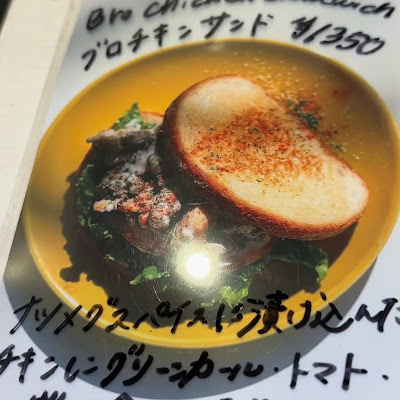 Bro Chicken Sandwich
ブロチキンサンド ¥1350
ナツメグスパイスに漬け込んだ
チキンにグリーンカール・トマト・